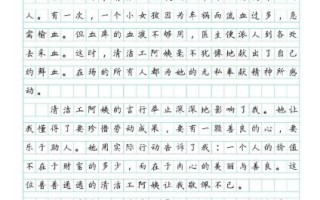 人。有一次,一个小女孩因为车祸而流血过多,急
需输血。但血库的血液不够用,医生便派人到各处
去采血。这时,清洁工阿姨毫不犹像地献出了自己
的鲜血。在场的所有人都为她的无私奉献精神所感
动。
清洁工阿姨的言行举止深深地影响了我。她让
我懂得了要珍惜劳动成果,要有一颗善良的心,要
乐于助人。她用实际行动告诉了我:一个人的价值
不在于财富的多少,而在于内心的美丽与善良。这
位普普通通的清洁工阿姨让我敬佩不已。